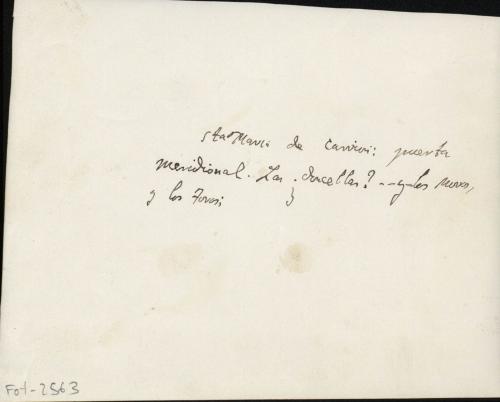 Sta Maria de Carrion: puerta
meridional. Las doncellas? -- y los moros,
y los Toros;
Fot-2563